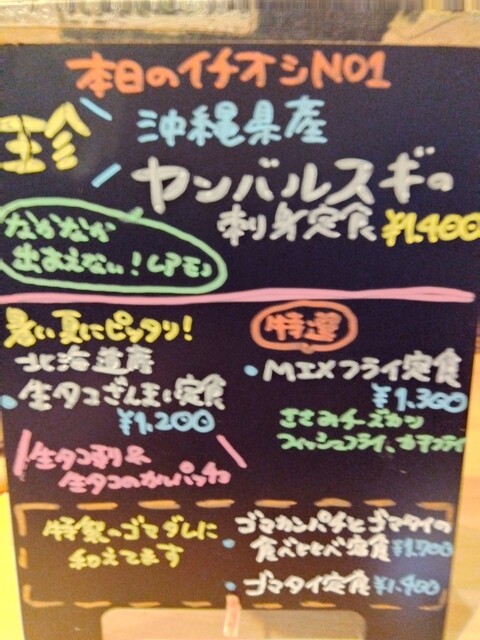 本日のイチオシNO1
珍
沖縄県産
ヤンバルスギの
刺身定食 ¥1,400
なかなか
出まえない!レアモノ
暑い夏にピッタリ!
北海道産
・生タコざんまい定食
¥1,200
生タコ刺&
生タコのカルパッチョ
特選
・MIXフライ定食
¥1,300
ささみチーズカツ
フィッシュフライ、
特製のゴマダレに
和えてます
ゴマカンパチとゴマタイの
・食べくらべ定食 ¥1,700
・ゴマタイ定食 ¥1,400